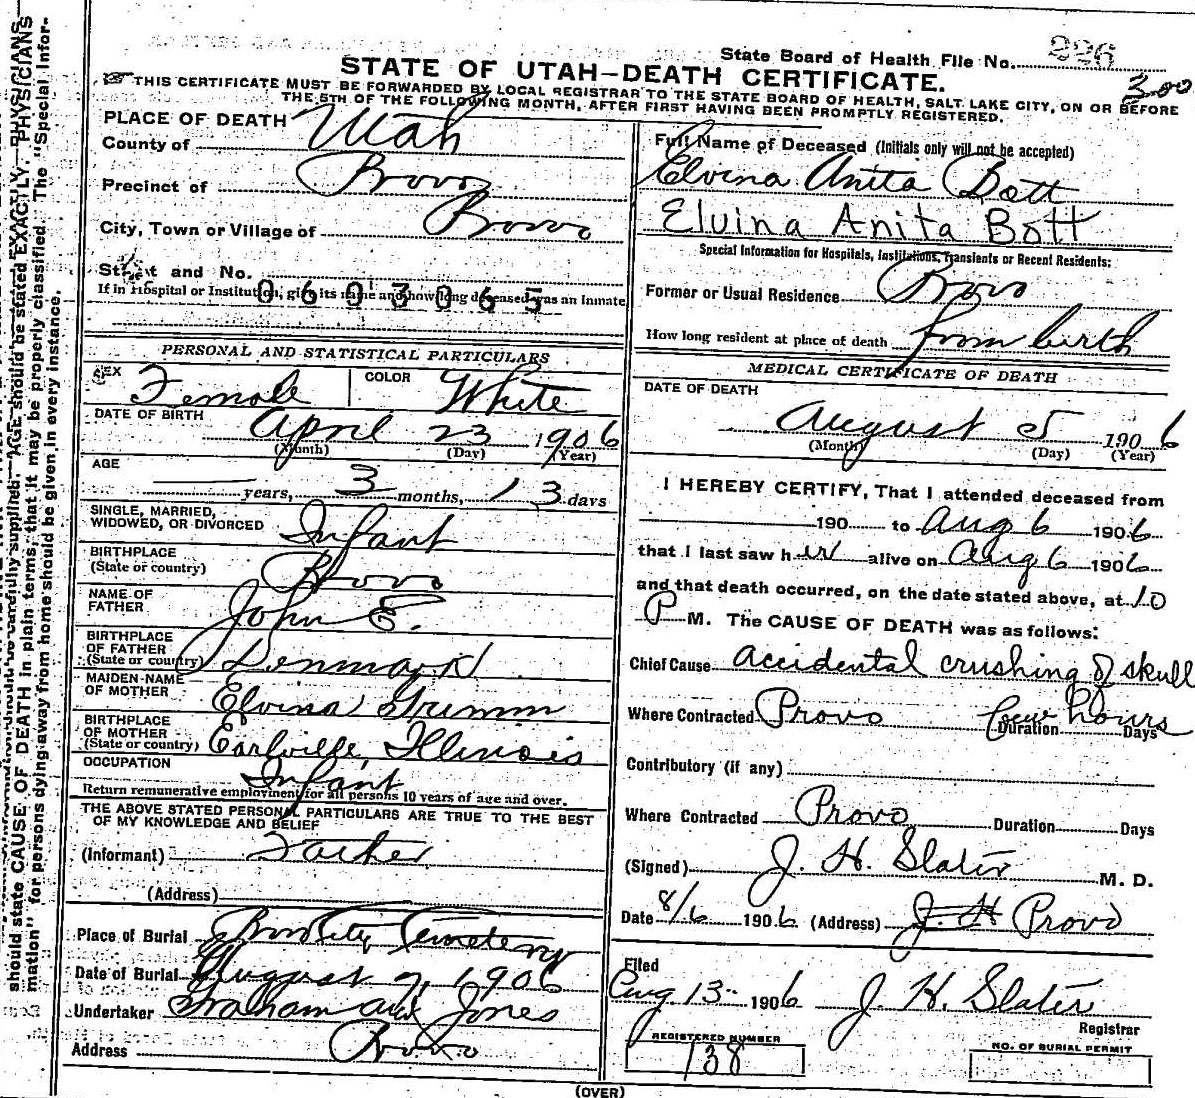 State Board of Health File No. 226
STATE OF UTAH—DEATH CERTIFICATE.
300
THIS CERTIFICATE MUST BE FORWARDED BY LOCAL REGISTRAR TO THE STATE BOARD OF HEALTH, SALT LAKE CITY, ON OR BEFORE
THE 5TH OF THE FOLLOWING MONTH, AFTER FIRST HAVING BEEN PROMPTLY REGISTERED.
PLACE OF DEATH
County of Utah
Precinct of Provo
City, Town or Village of Provo
Street and No.
If in Hospital or Institution, give its name and how long deceased was an Inmate
0603065
PERSONAL AND STATISTICAL PARTICULARS
SEX Female COLOR White
DATE OF BIRTH April 23 1906
(Month) (Day) (Year)
AGE
years, 3 months, 13 days
SINGLE, MARRIED,
WIDOWED, OR DIVORCED Infant
BIRTHPLACE
(State or country) Provo
NAME OF
FATHER John E.
BIRTHPLACE
OF FATHER
(State or country) Denmark
MAIDEN-NAME
OF MOTHER Elvina Grimm
BIRTHPLACE
OF MOTHER
(State or country) Earlville, Illinois
OCCUPATION Infant
Return remunerative employment for all persons 10 years of age and over.
THE ABOVE STATED PERSONAL PARTICULARS ARE TRUE TO THE BEST
OF MY KNOWLEDGE AND BELIEF
(Informant) Father
(Address)
Place of Burial Provo City Cemetery
Date of Burial August 7, 1906
Undertaker Graham and Jones
Address Provo
Full Name of Deceased (Initials only will not be accepted)
Elvina Anita Bott
Elvina Anita Bott
Special Information for Hospitals, Institutions, Transients or Recent Residents:
Former or Usual Residence Provo
How long resident at place of death from birth
MEDICAL CERTIFICATE OF DEATH
DATE OF DEATH
August 5 1906
(Month) (Day) (Year)
I HEREBY CERTIFY, That I attended deceased from
190 to Aug 6 1906
that I last saw her alive on Aug 6 1906
and that death occurred, on the date stated above, at 10
P M. The CAUSE OF DEATH was as follows:
Chief Cause accidental crushing of skull
Where Contracted Provo few hours
Duration Days
Contributory (if any)
Where Contracted Provo Duration Days
(Signed) J. H. Slater M. D.
Date 8/6 1906 (Address) J. H Provo
Filed
Aug 13 1906 J. H. Slater
Registrar
REGISTERED NUMBER
138
NO. OF BURIAL PERMIT
(OVER)
should state CAUSE OF DEATH in plain terms, that it may be properly classified. The "Special Infor-
mation" for persons dying away from home should be given in every instance.